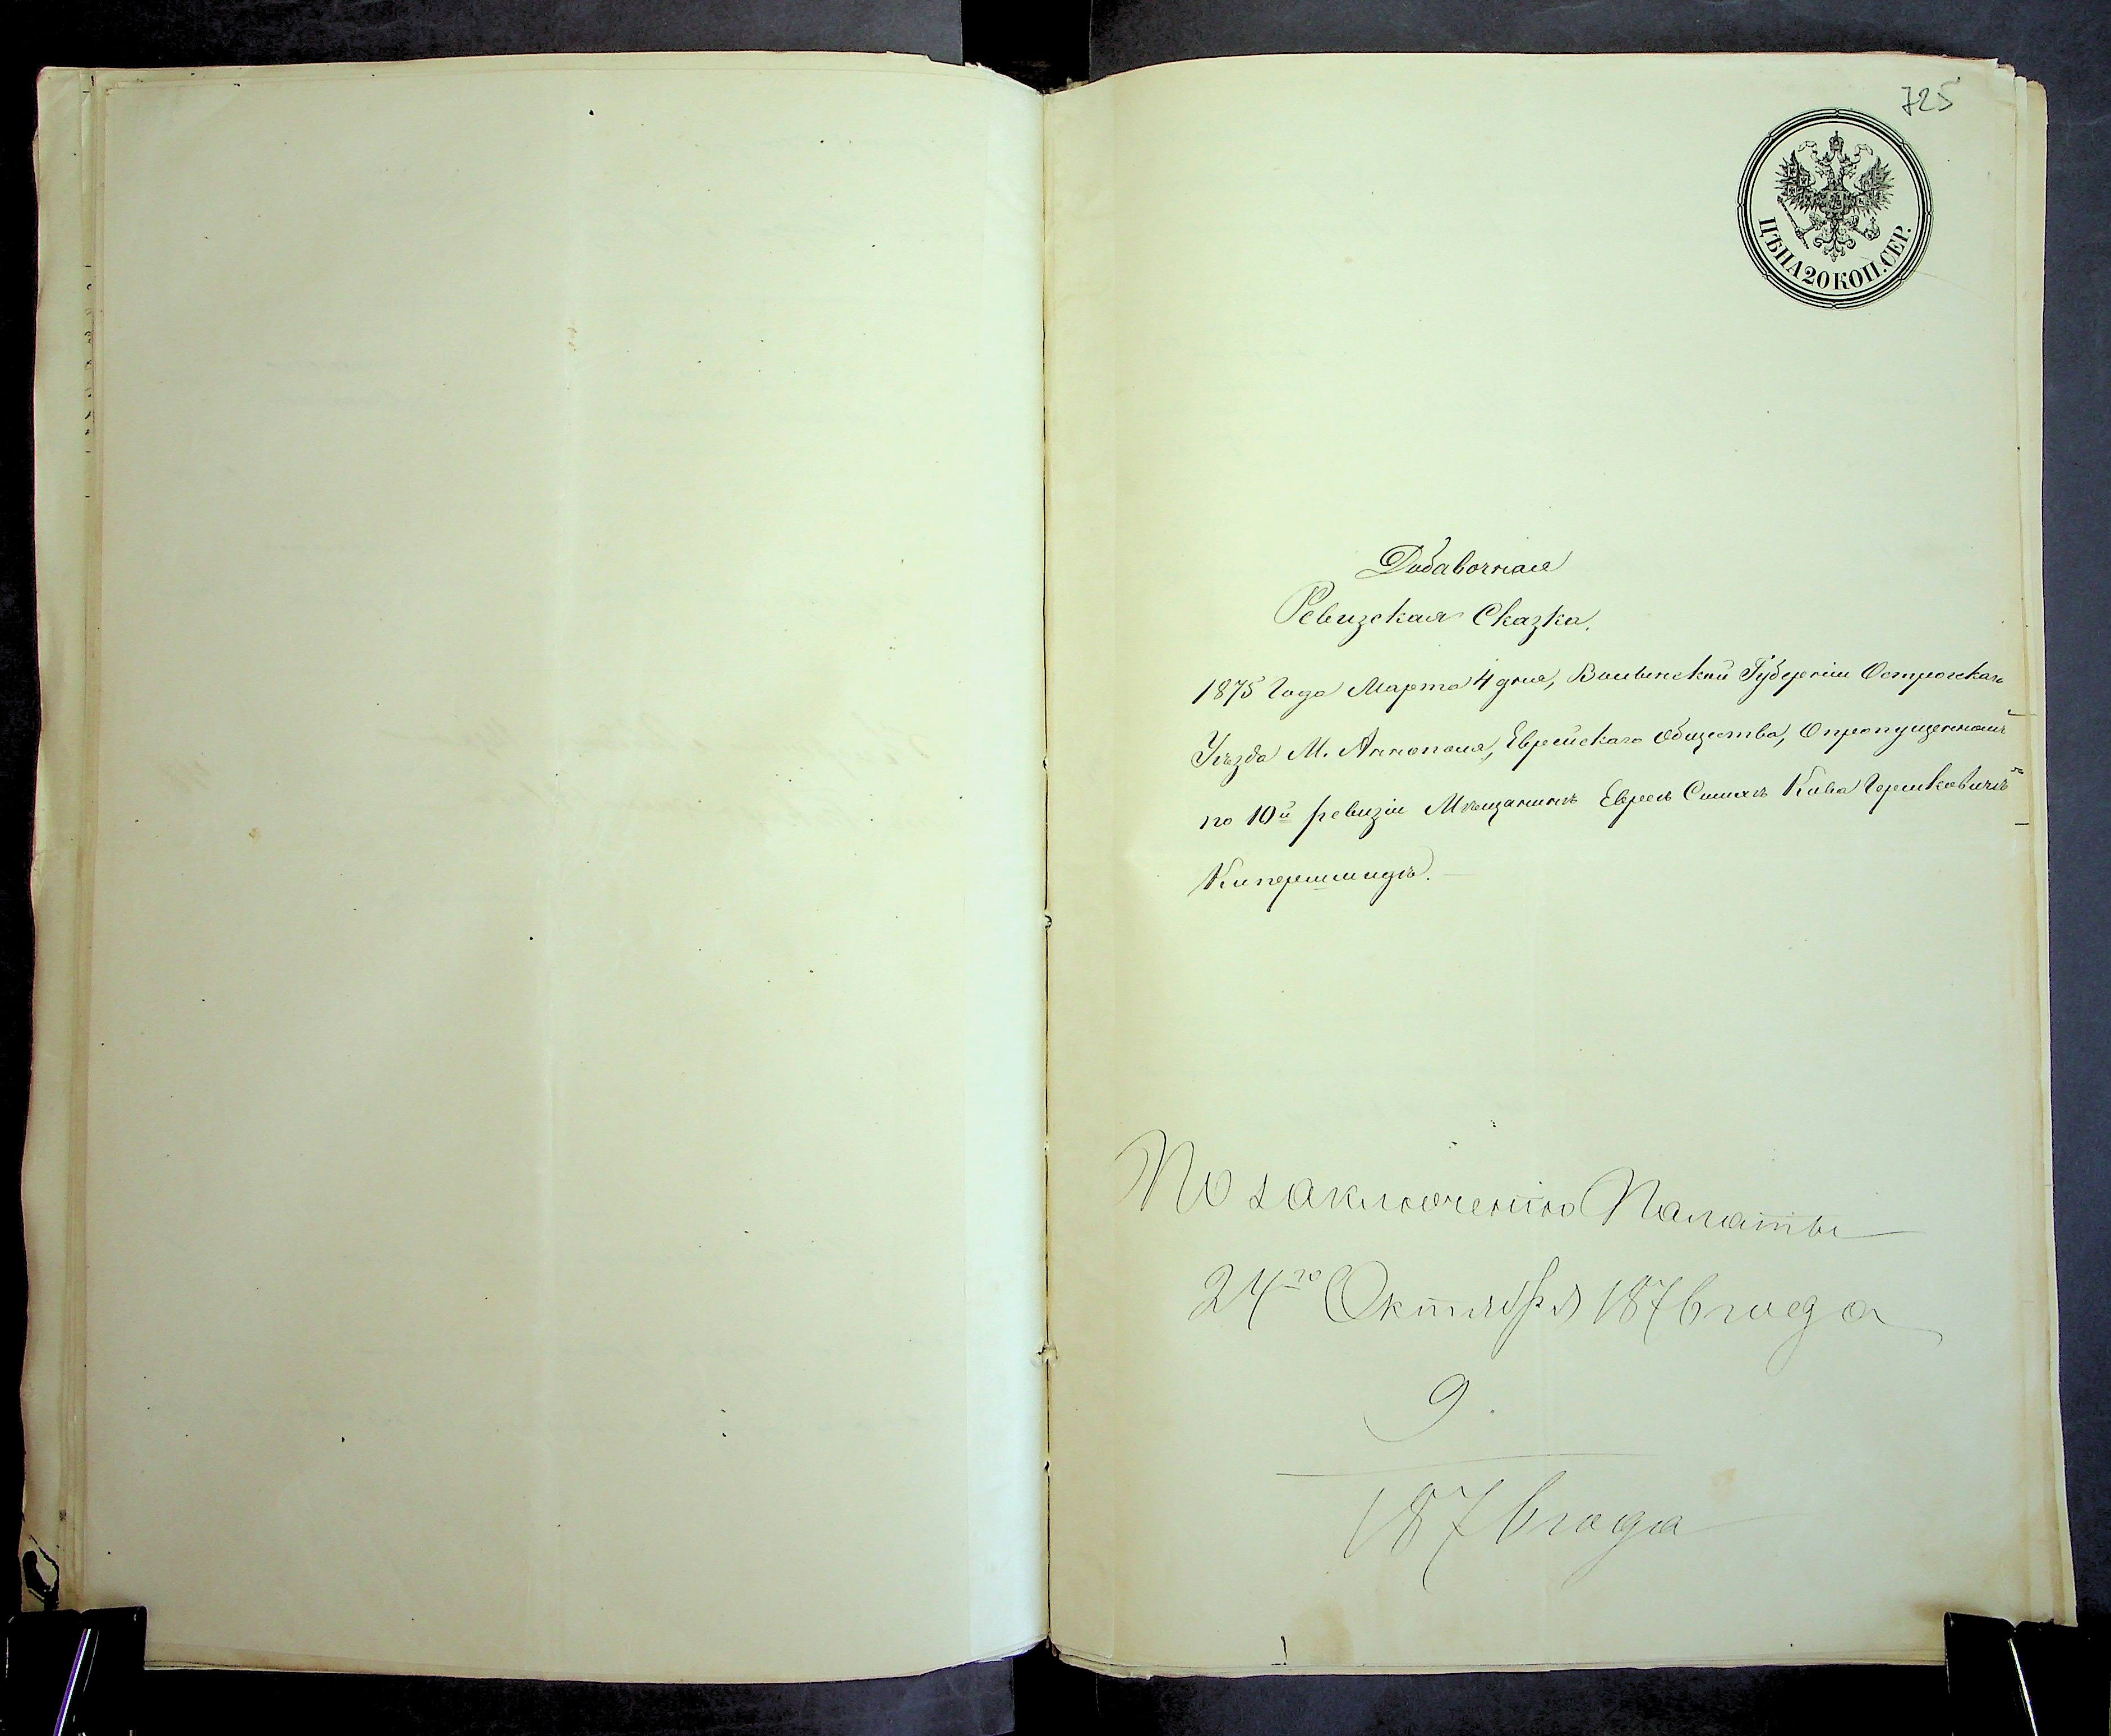 725
ЦѢНА 20 КОП. СЕР.
Добавочная
Ревизская Сказка.
1875 Года Марта 4 дня, Волынской Губерніи Острогскаго
Уѣзда М. Аннополя, Еврейскаго Общества, О пропущенномъ
по 10й ревизіи Мѣщанинѣ Евреѣ Кива Гершковичъ
Кипершмидъ.
По заключенію Палаты
24го Октября 1876 года
9.
1876 года